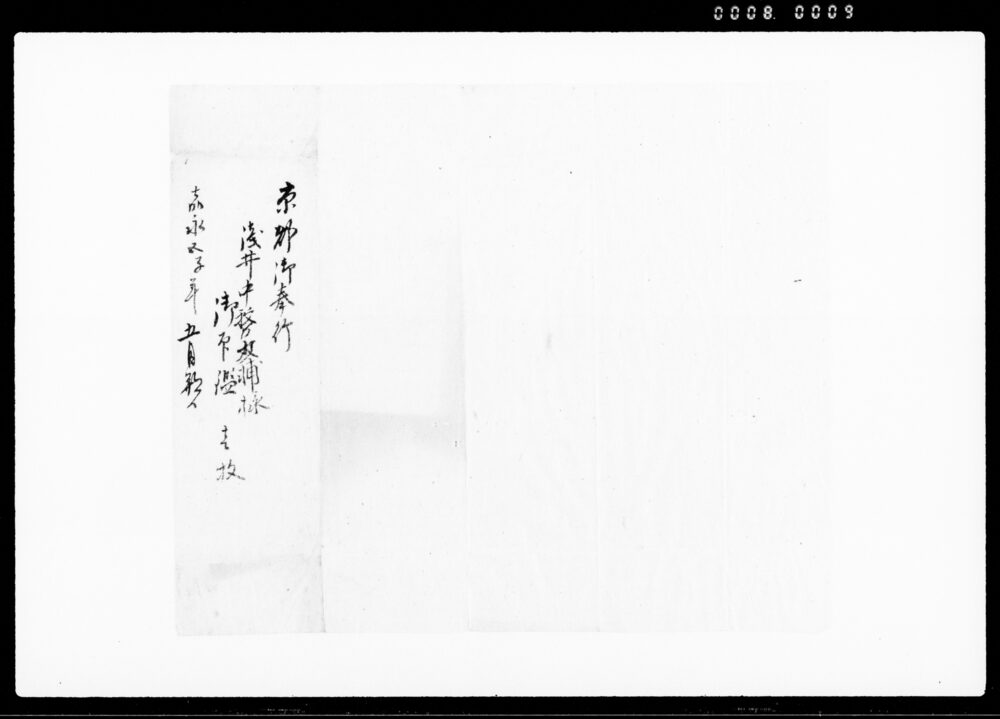 0008 0009
京都御奉行
浅井中務輔様
御印鑑 壱枚
嘉永五子年 五月